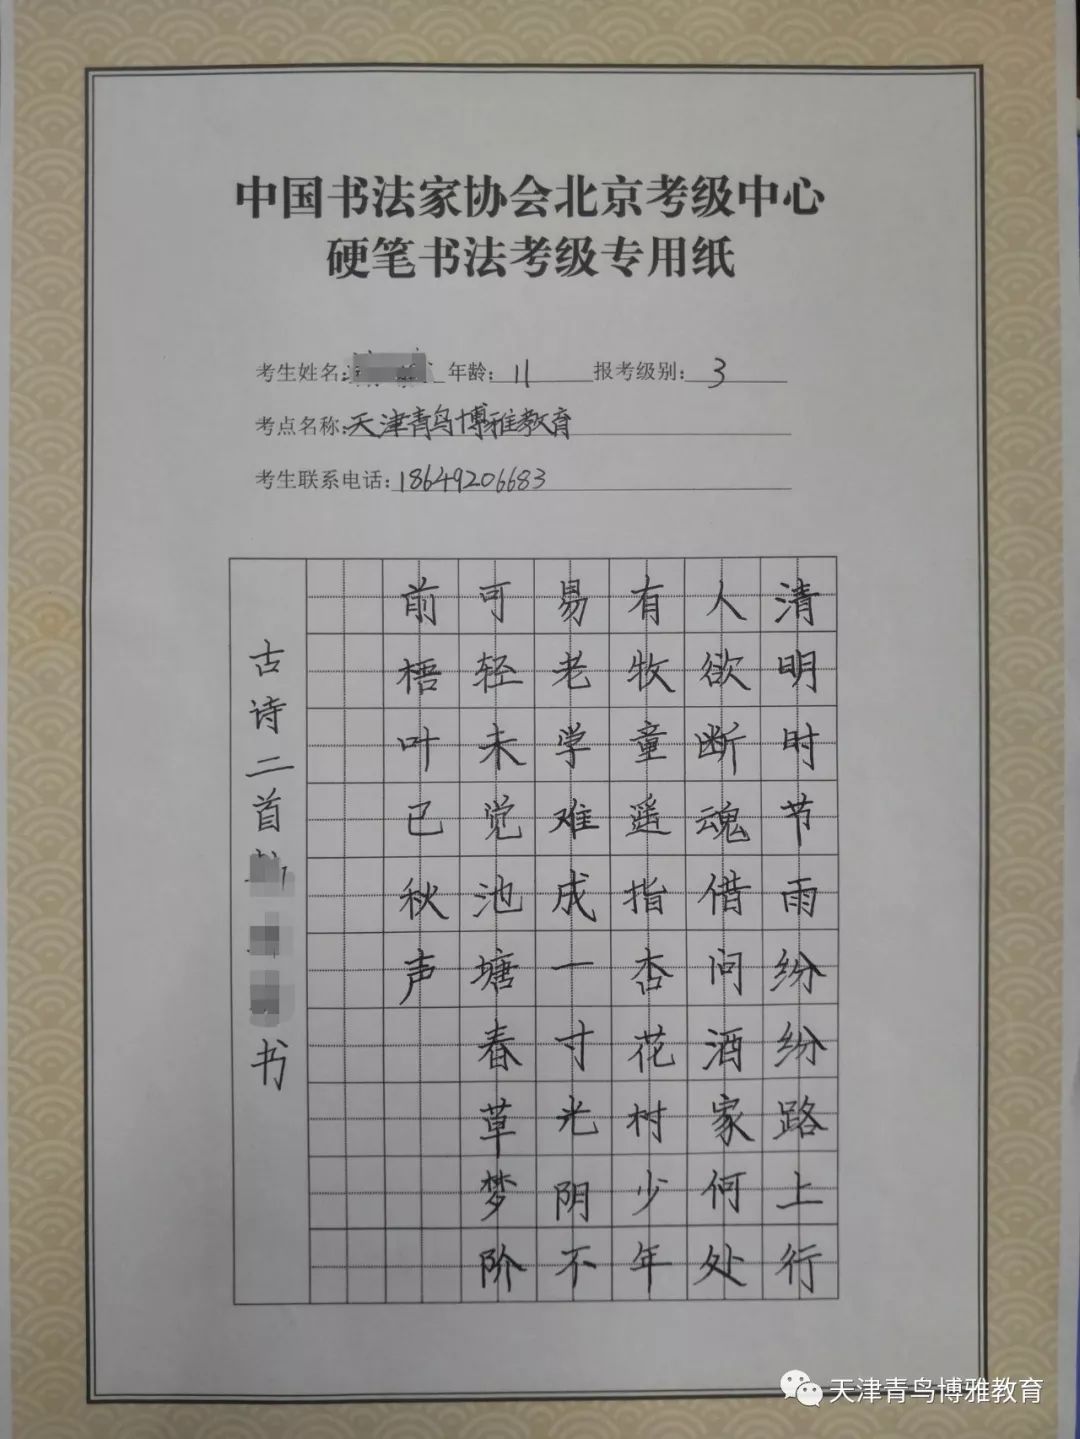 中国书法家协会北京考级中心
硬笔书法考级专用纸
考生姓名: 年龄: 11 报考级别: 3
考点名称: 天津青鸟博雅教育
考生联系电话: 18649206683
清明时节雨纷纷路上行
人欲断魂借问酒家何处
有牧童遥指杏花村少年
易老学难成一寸光阴不
可轻未觉池塘春草梦阶
前梧叶已秋声
古诗二首
书
天津青鸟博雅教育